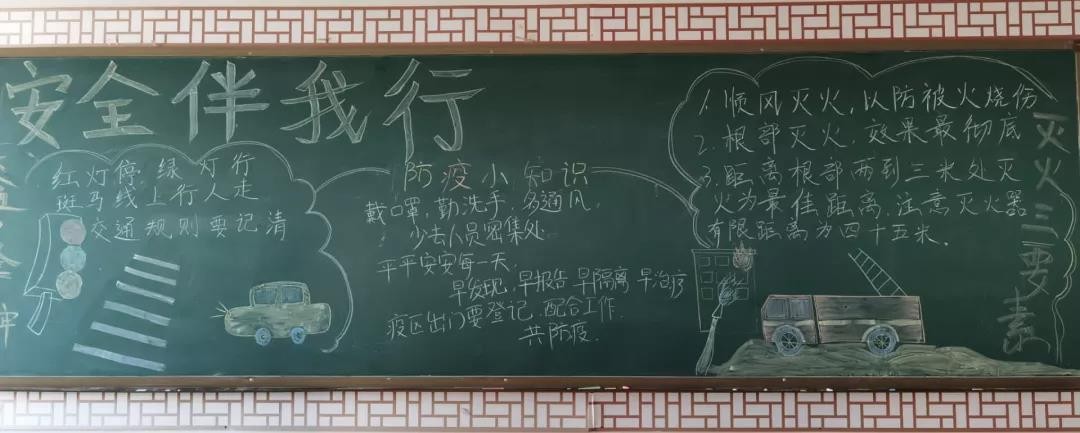 安全伴我行
红灯停 绿灯行
斑马线上行人走
交通规则要记清
防疫小知识
戴口罩,勤洗手,多通风,
少去人员密集处
平平安安每一天.
早发现,早报告 早隔离 早治疗
疫区出门要登记,配合工作.
共防疫.
1.顺风灭火,以防被火烧伤
2.根部灭火,效果最彻底
3.距离根部两到三米处灭
火为最佳距离,注意灭火器
有限距离为四十五米.
灭火三要素